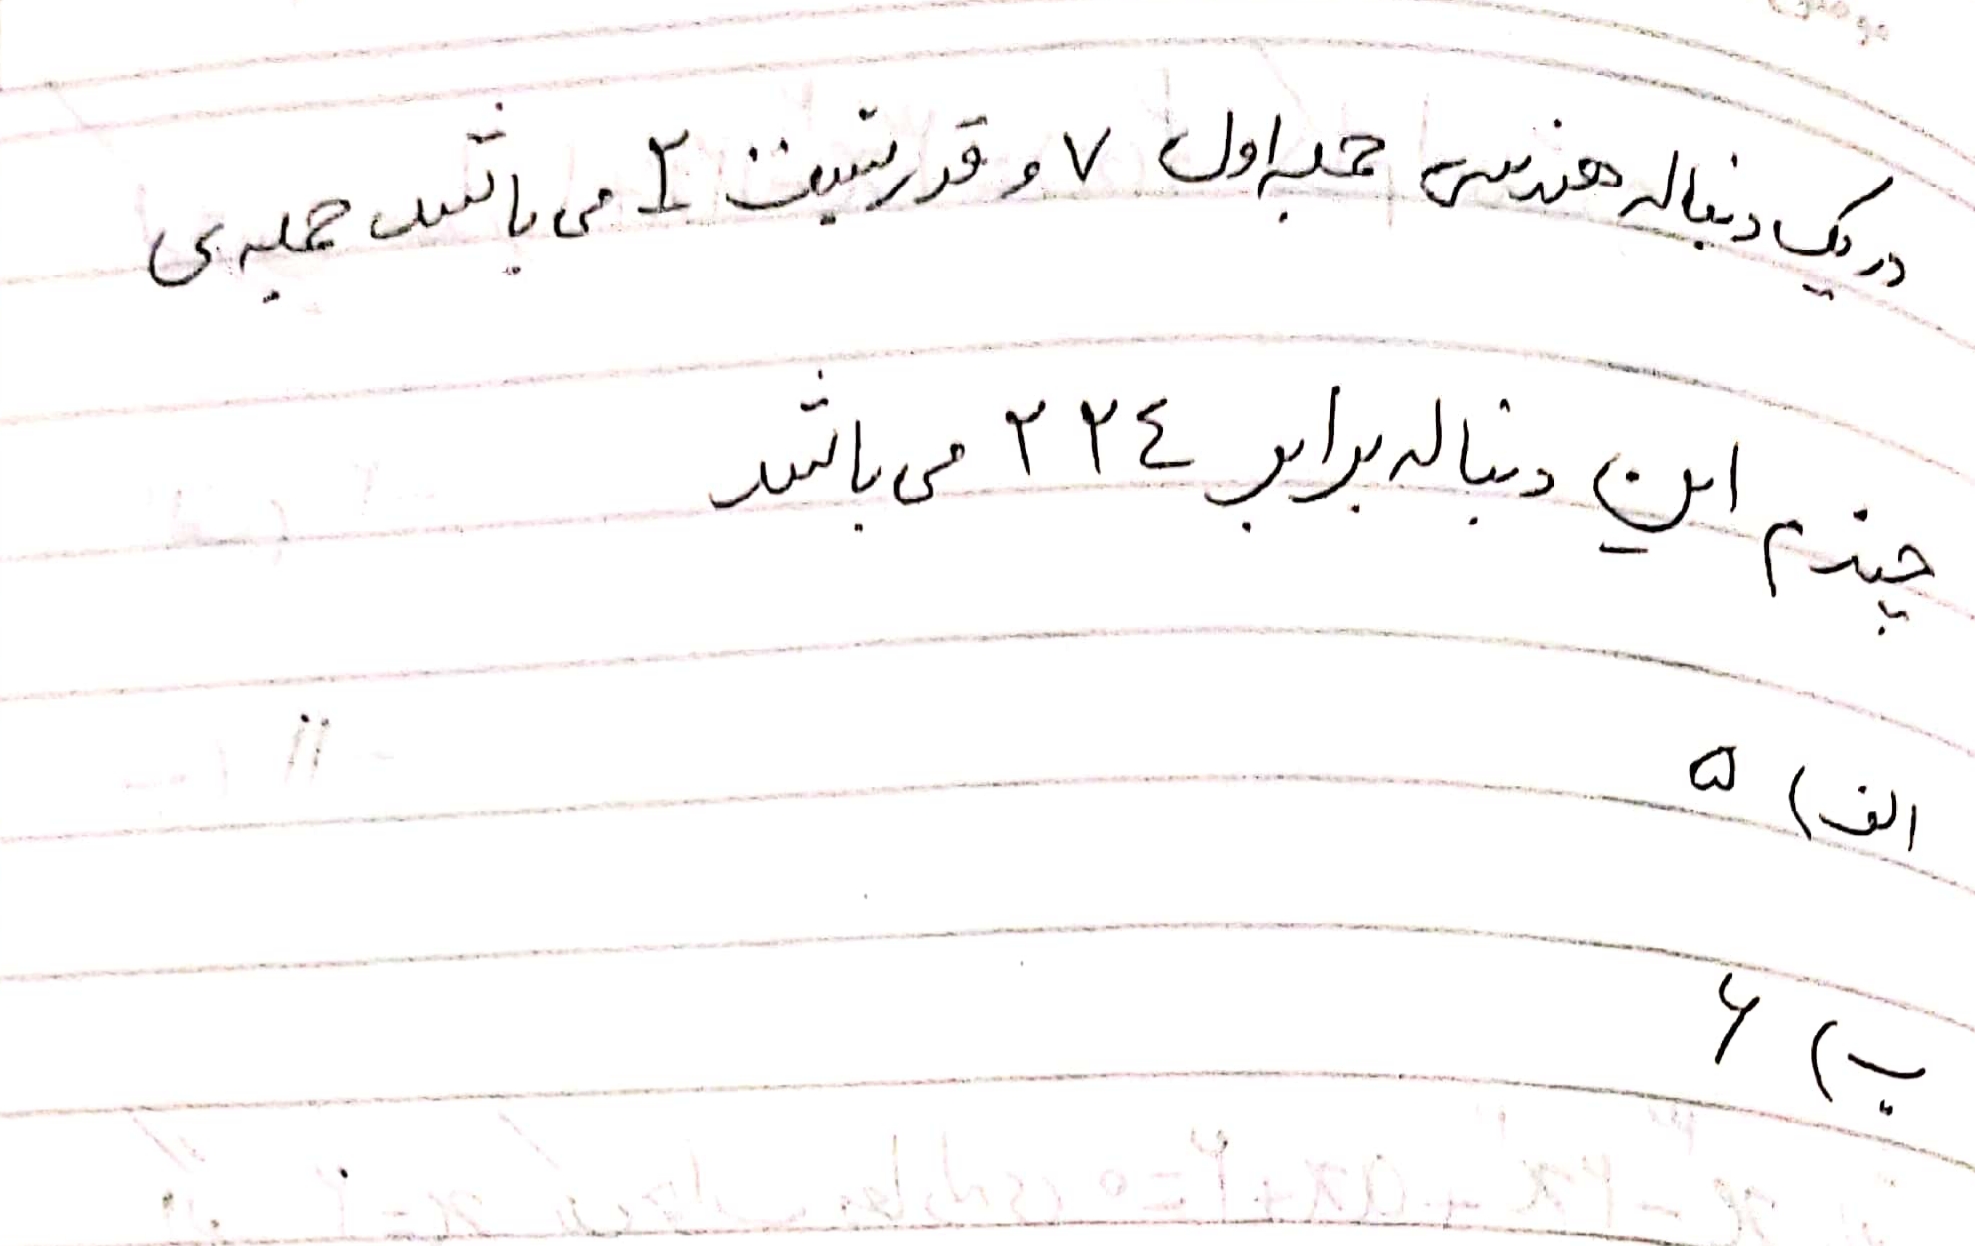 در یک دنباله هندسی جمله اول ۷ و قدر نسبت ۲ می باشد جمله ی
چندم این دنباله برابر ۲۲۴ می باشد
الف) ۵
ب) ۶